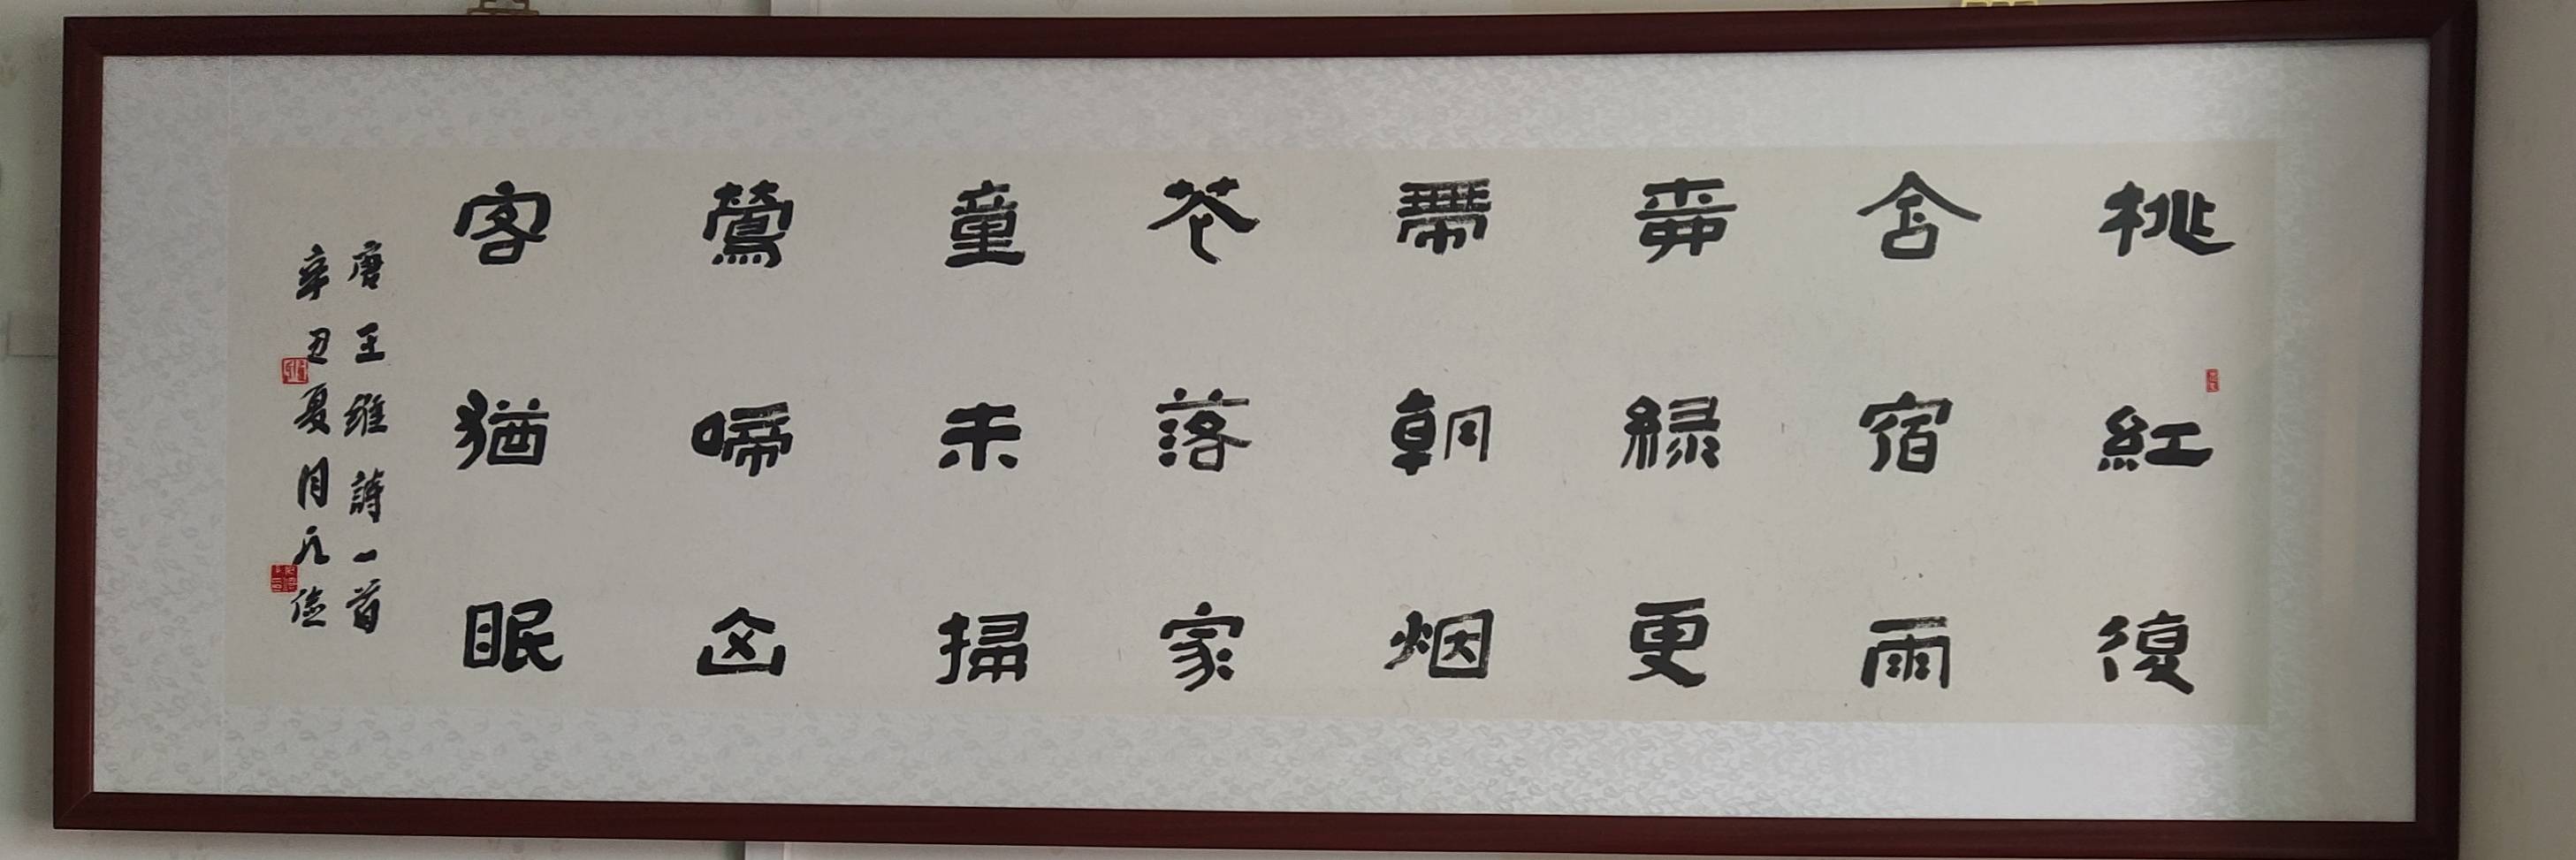 桃紅復
含宿雨
柳緑更
帶朝烟
花落家
童未掃
鶯啼山
客猶眠
唐王維詩一首
辛丑夏月